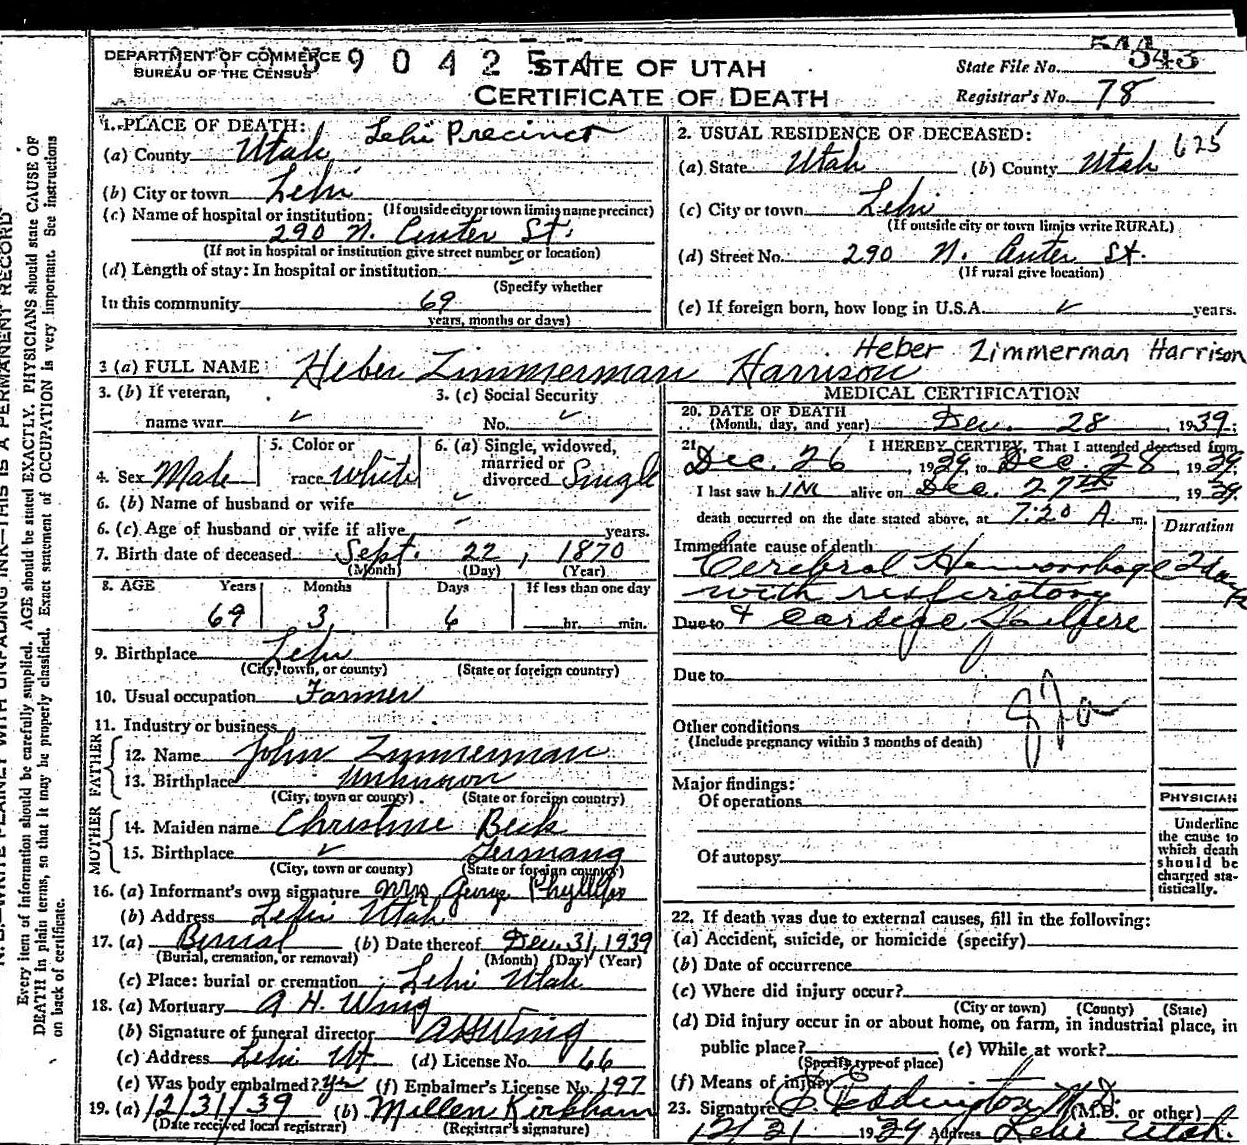 DEPARTMENT OF COMMERCE
BUREAU OF THE CENSUS
3904254
STATE OF UTAH
CERTIFICATE OF DEATH
State File No. 543
Registrar's No. 78
1. PLACE OF DEATH: Lehi Precinct
(a) County Utah
(b) City or town Lehi
(If outside city or town limits name precinct)
(c) Name of hospital or institution:
290 N. Center St.
(If not in hospital or institution give street number or location)
(d) Length of stay: In hospital or institution
(Specify whether
In this community 69
years, months or days)
2. USUAL RESIDENCE OF DECEASED:
625
(a) State Utah (b) County Utah
(c) City or town Lehi
(If outside city or town limits write RURAL)
(d) Street No. 290 N. Center St.
(If rural give location)
(e) If foreign born, how long in U.S.A. ✓ years.
3 (a) FULL NAME Heber Zimmerman Harrison
Heber Zimmerman Harrison
3. (b) If veteran,
name war ✓
3. (c) Social Security
No. ✓
4. Sex Male
5. Color or
race white
6. (a) Single, widowed,
married or
divorced Single
6. (b) Name of husband or wife
6. (c) Age of husband or wife if alive years.
7. Birth date of deceased Sept. 22, 1870
(Month) (Day) (Year)
8. AGE Years Months Days If less than one day
69 3 6 hr. min.
9. Birthplace Lehi
(City, town, or county) (State or foreign country)
10. Usual occupation Farmer
11. Industry or business
FATHER
12. Name John Zimmerman
13. Birthplace Unknown
(City, town or county) (State or foreign country)
MOTHER
14. Maiden name Christine Beck
15. Birthplace ✓ Germany
(City, town or county) (State or foreign country)
16. (a) Informant's own signature Mrs George
(b) Address Lehi Utah
17. (a) Burial (b) Date thereof Dec. 31, 1939
(Burial, cremation, or removal) (Month) (Day) (Year)
(c) Place: burial or cremation Lehi Utah
18. (a) Mortuary A H. Wing
(b) Signature of funeral director A H Wing
(c) Address Lehi Ut. (d) License No. 66
(e) Was body embalmed? yes (f) Embalmer's License No. 197
19. (a) 12/31/39 (b) Millen Kirkham
(Date received local registrar) (Registrar's signature)
MEDICAL CERTIFICATION
20. DATE OF DEATH
(Month, day, and year) Dec. 28 1939;
21. I HEREBY CERTIFY, That I attended deceased from
Dec. 26, 1939, to Dec. 28 1939;
I last saw him alive on Dec. 27th 1939
death occurred on the date stated above, at 7:20 A. m.
Duration
Immediate cause of death
Cerebral Hemorrhage 2 days
with respiratory
Due to & Cardiac Failure
Due to
Other conditions
(Include pregnancy within 3 months of death)
Major findings:
Of operations
Of autopsy
PHYSICIAN
Underline
the cause to
which death
should be
charged sta-
tistically.
22. If death was due to external causes, fill in the following:
(a) Accident, suicide, or homicide (specify)
(b) Date of occurrence
(c) Where did injury occur?
(City or town) (County) (State)
(d) Did injury occur in or about home, on farm, in industrial place, in
public place? (e) While at work?
(Specify type of place)
(f) Means of injury
23. Signature Eddington M.D. (M.D. or other)
12/31 1939 Address Lehi Utah.
N. B.—WRITE PLAINLY WITH UNFADING INK—THIS IS A PERMANENT RECORD
Every item of information should be carefully supplied. AGE should be stated EXACTLY. PHYSICIANS should state CAUSE OF
DEATH in plain terms, so that it may be properly classified. Exact statement of OCCUPATION is very important. See instructions
on back of certificate.